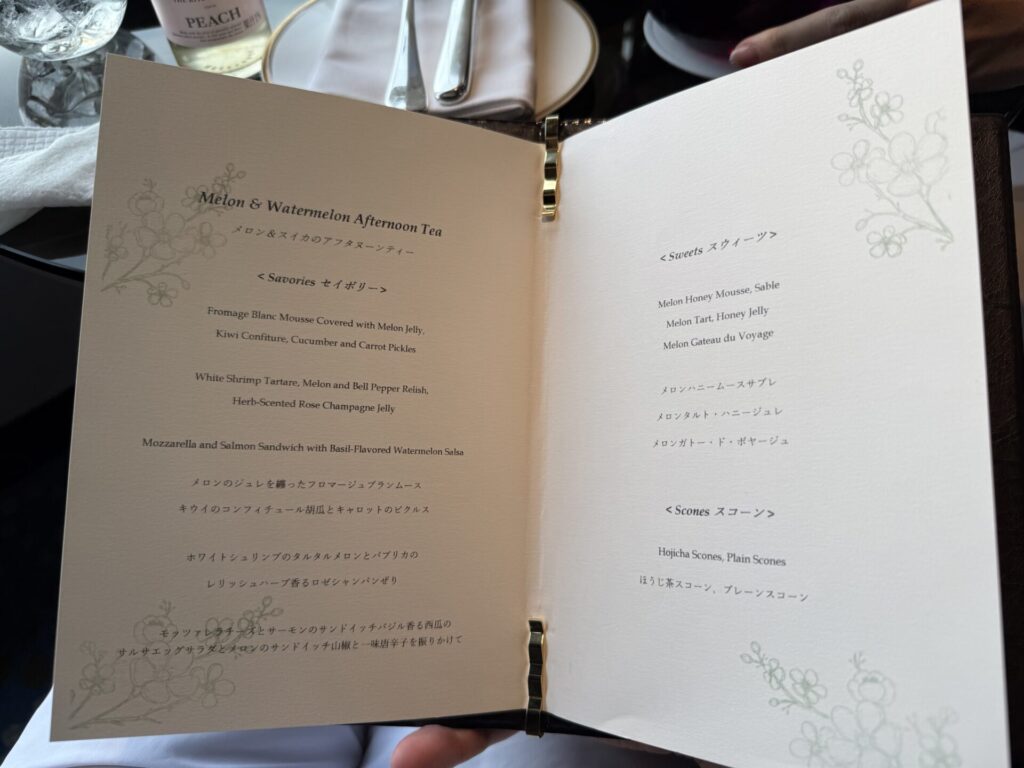 PEACH
Melon & Watermelon Afternoon Tea
メロン&スイカのアフタヌーンティー
<Savories セイボリー>
Fromage Blanc Mousse Covered with Melon Jelly,
Kiwi Confiture, Cucumber and Carrot Pickles
White Shrimp Tartare, Melon and Bell Pepper Relish,
Herb-Scented Rose Champagne Jelly
Mozzarella and Salmon Sandwich with Basil-Flavored Watermelon Salsa
メロンのジュレを纏ったフロマージュブランムース
キウイのコンフィチュール胡瓜とキャロットのピクルス
ホワイトシュリンプのタルタルメロンとパプリカの
レリッシュハーブ香るロゼシャンパンぜり
モッツァレラチーズとサーモンのサンドイッチバジル香る西瓜の
サルサエッグサラダとメロンのサンドイッチ山椒と一味唐辛子を振りかけて
<Sweets スウィーツ>
Melon Honey Mousse, Sable
Melon Tart, Honey Jelly
Melon Gateau du Voyage
メロンハニームースサブレ
メロンタルト・ハニージュレ
メロンガトー・ド・ボヤージュ
<Scones スコーン>
Hojicha Scones, Plain Scones
ほうじ茶スコーン、プレーンスコーン